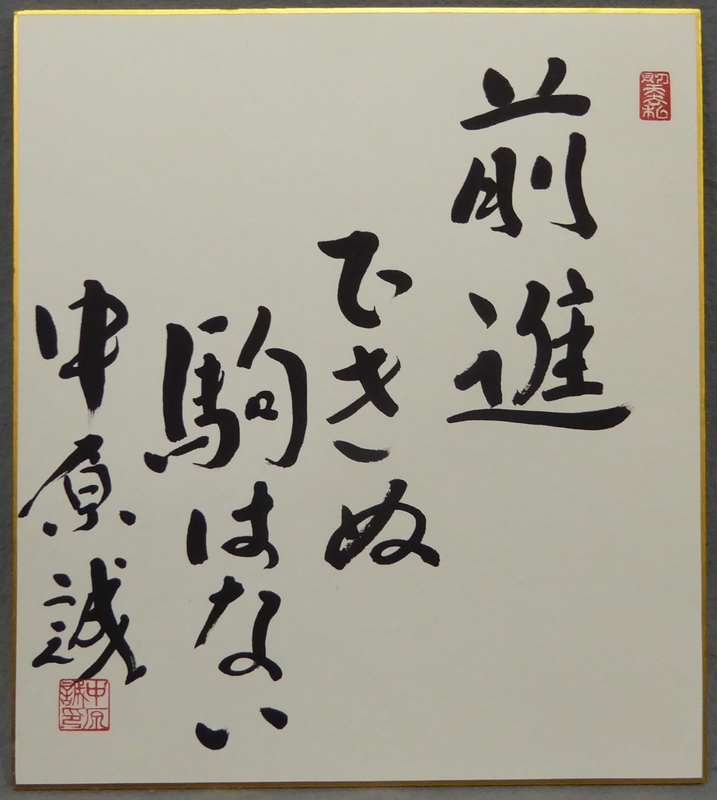 前進
できぬ
駒はない
中原誠